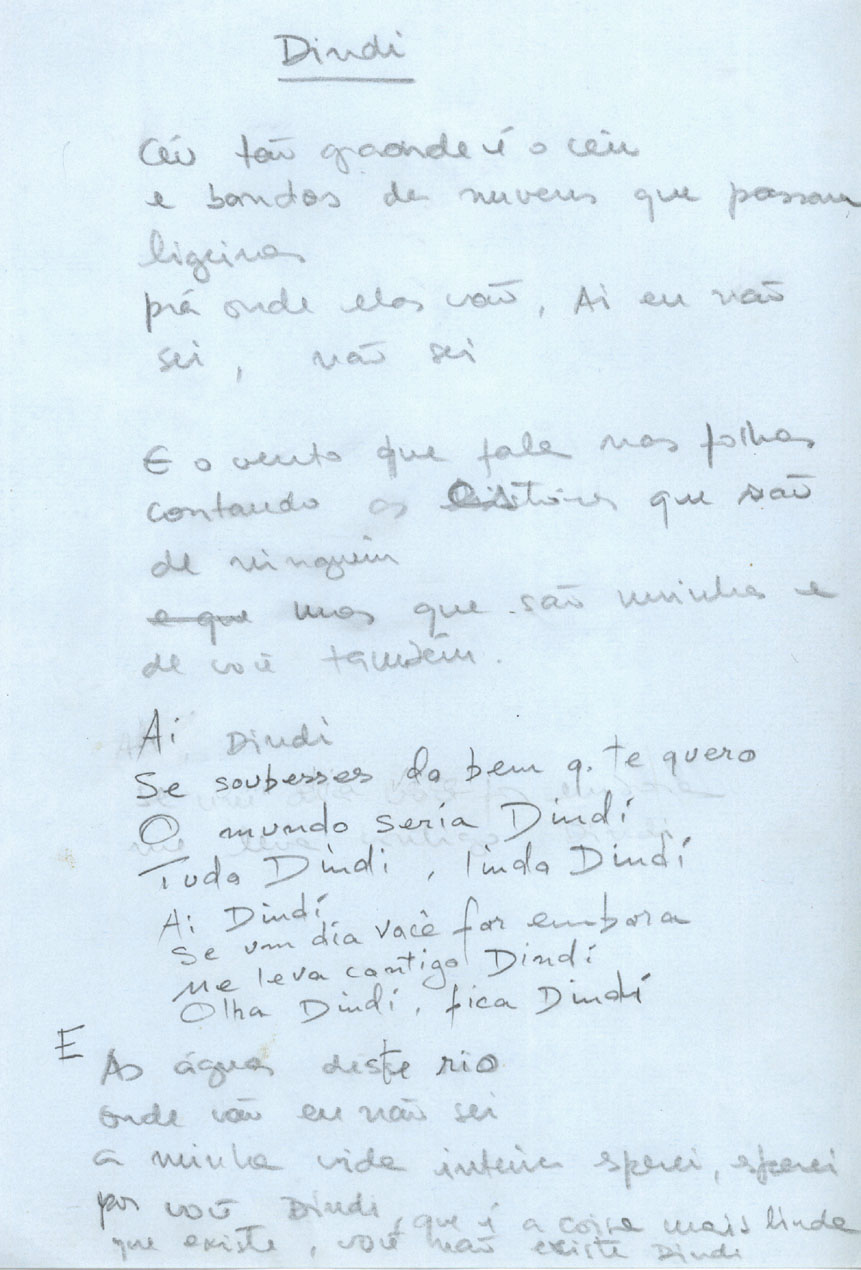 Dindi
Céu tão graande é o céu
e bandos de nuvens que passam
ligeiras
prá onde elas vão, Ai eu não
sei, não sei
E o vento que fala nas folhas
contando as histórias que são
de ninguém
e que mas que são minhas e
de você também.
Ai Dindi
Se soubesses do bem q. te quero
O mundo seria Dindí
Tudo Dindi, lindo Dindí
Ai Dindí
Se um dia você for embora
Me leva contigo Dindí
Olha Dindí, fica Dindí
E As águas deste rio
onde vão eu não sei
a minha vida inteira sperei, esperei
por você Dindi, que é a coisa mais linda
que existe, você não existe Dindi